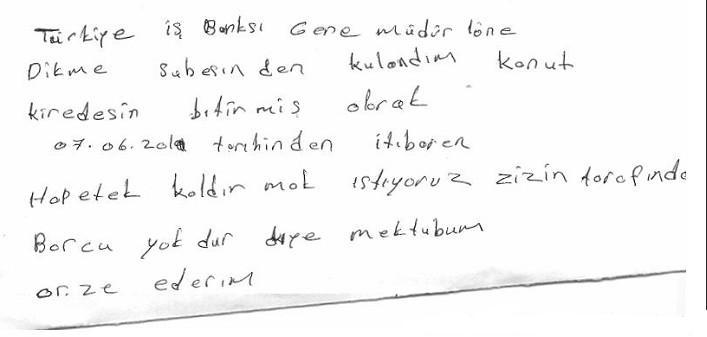 Türkiye iş Banksı Gene müdür lüne
Dikme subesin den kulandım konut
kiredesin bitin miş olrak
07.06. tarihinden itiboren
Hapetek kaldır mak istiyoruz zizin tarafında
Borcu yok dur diye mektubum
arze ederim